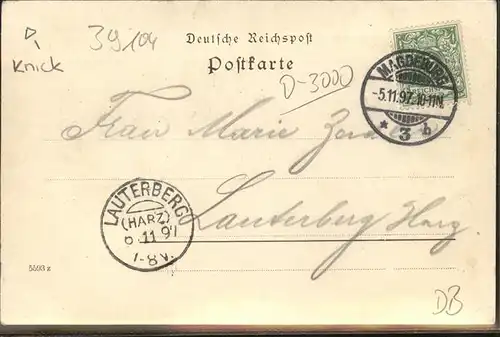 Knick
39104
Deutsche Reichspost
Postkarte
D-3000
MAGDEBURG
-5.11.97.10-11N.
* 3 b
Frau Marie
Lauterberg Harz
LAUTERBERG
(HARZ)
6 11 97
7-8V.
5593 z
DB